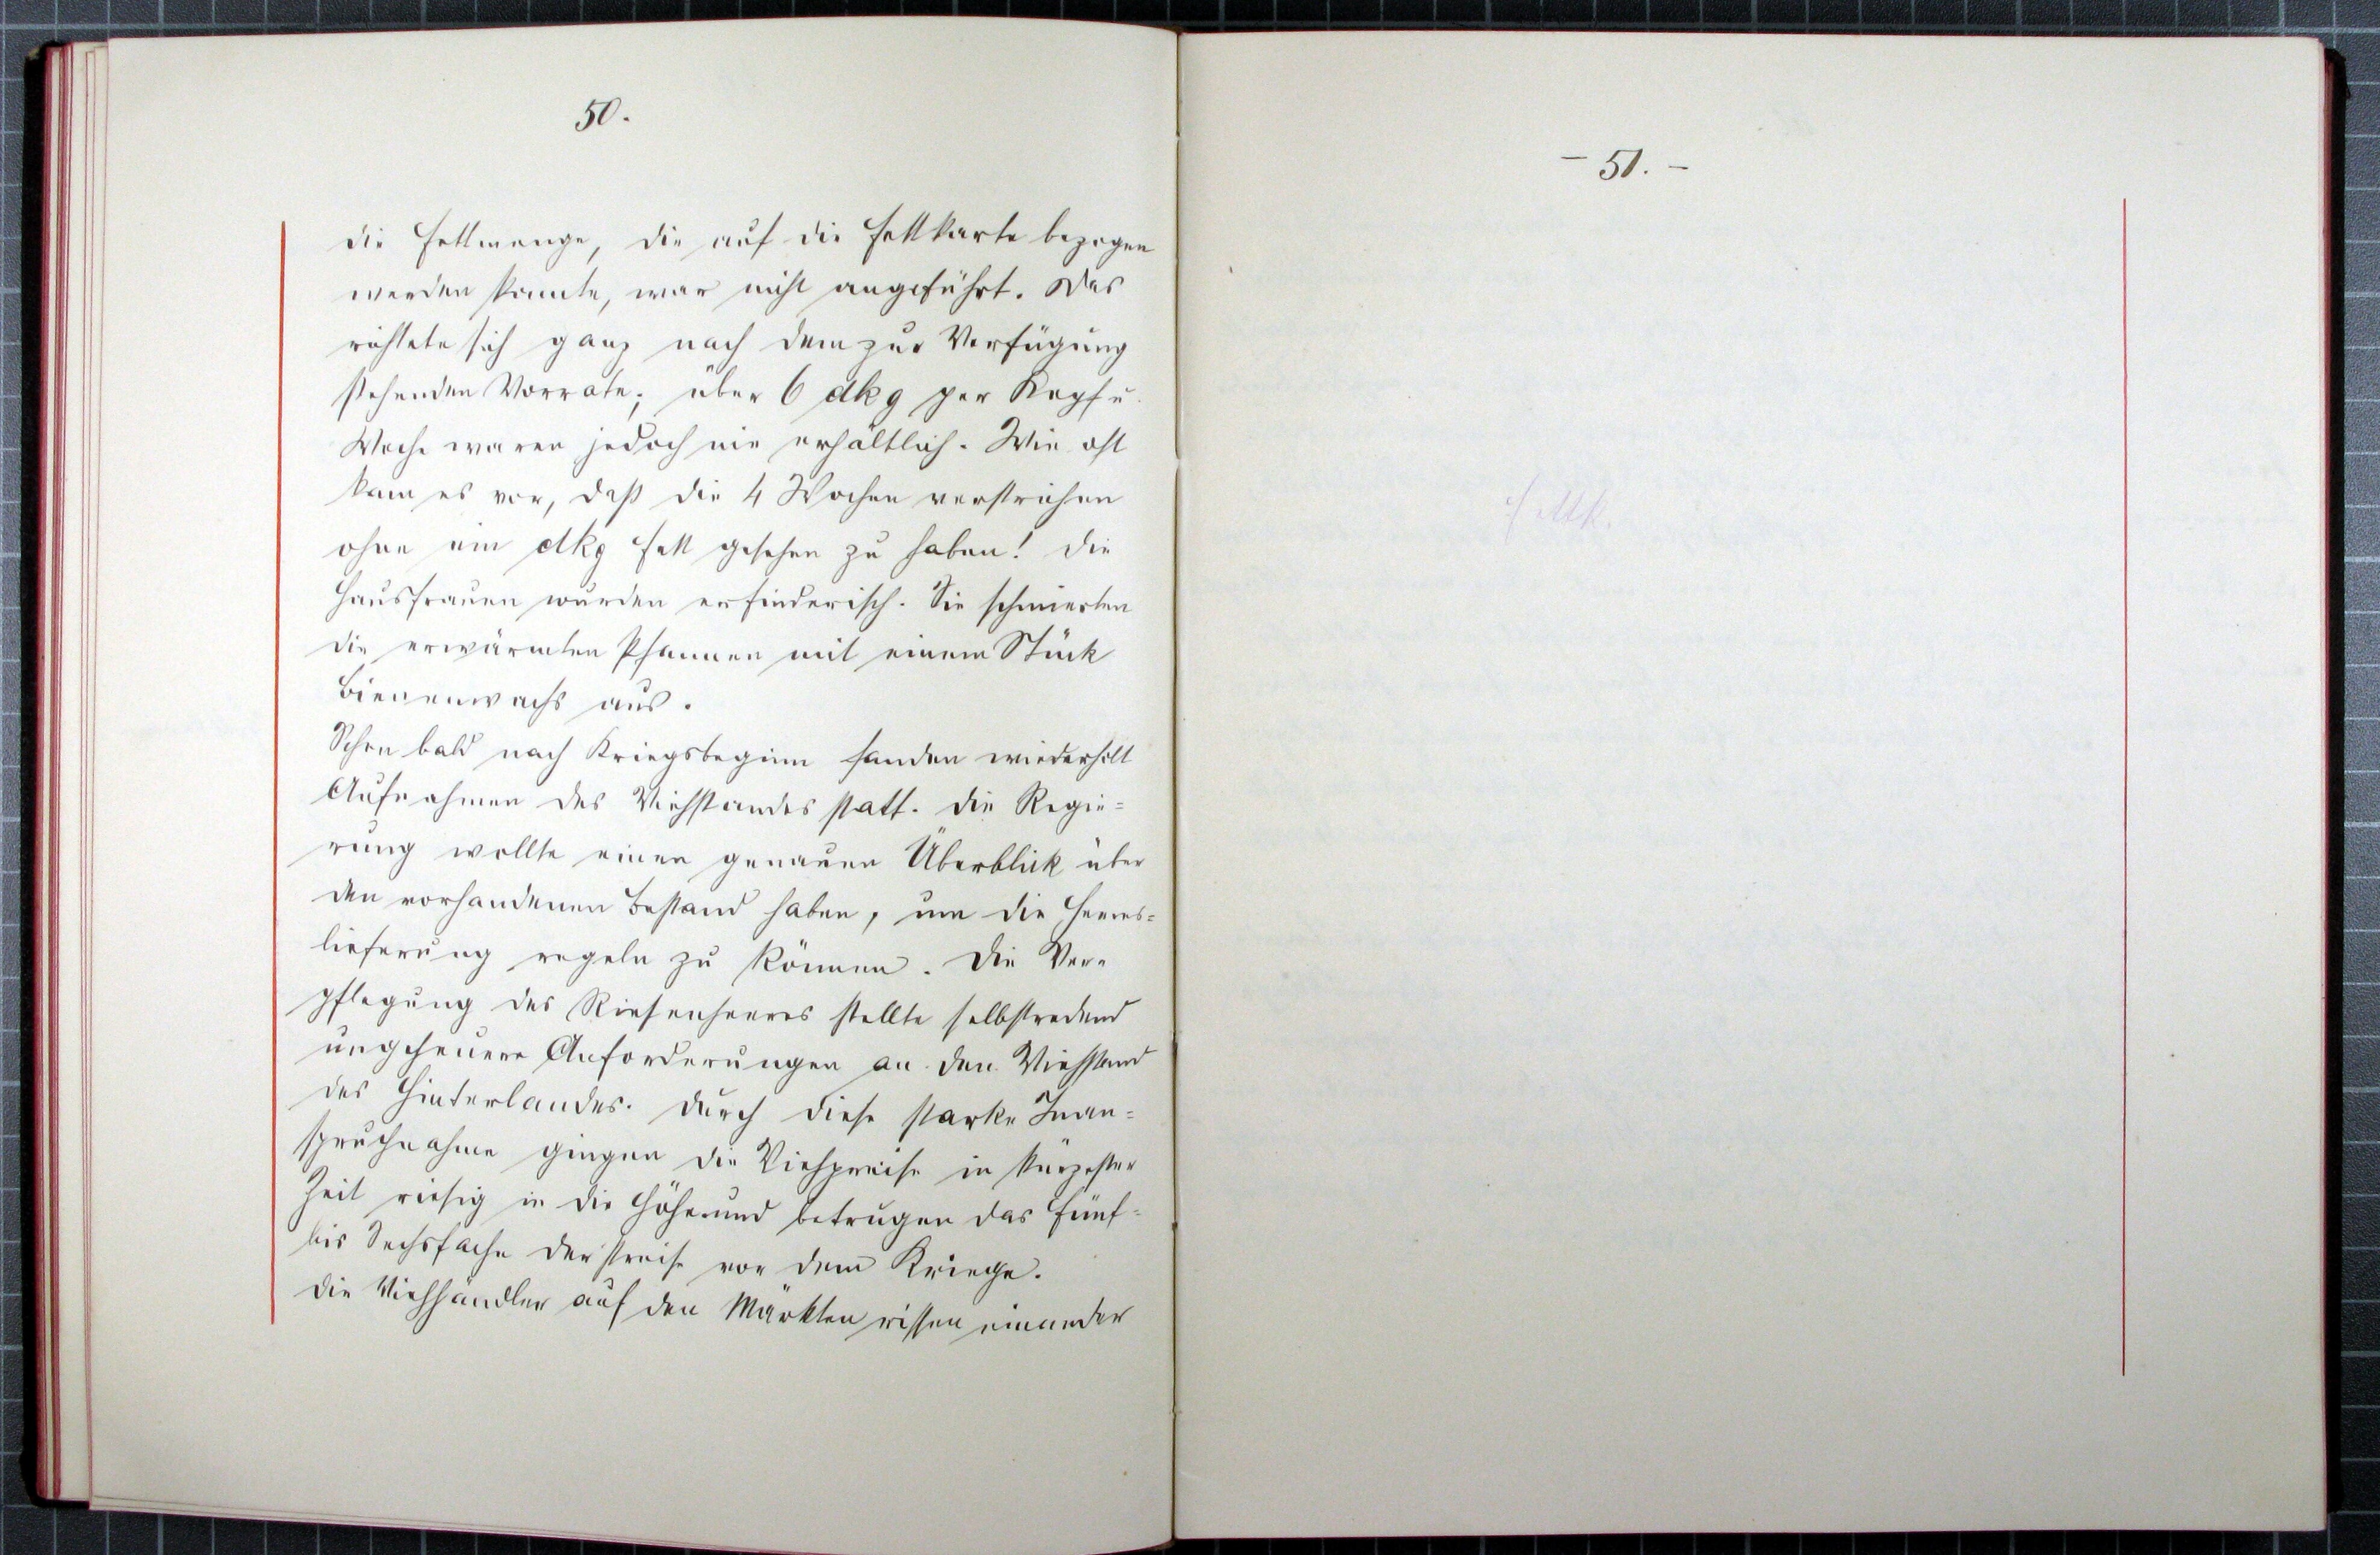 50.
die Fettmenge, die auf die Fettkarte bezogen
werden konnte, war nicht angeführt. Das
richtete sich ganz nach dem zur Verfügung
stehenden Vorrate; über 6 dkg per Kopf u.
Woche waren jedoch nie erhältlich. Wie oft
kam es vor, daß die 4 Wochen verstrichen
ohne ein dkg Fett gesehen zu haben! Die
Hausfrauen wurden erfinderisch. Sie schmierten
die erwärmten Pfannen mit einem Stück
Bienenwachs aus.
Schon bald nach Kriegsbeginn fanden wiederholt
Aufnahmen des Viehstandes statt. Die Regie=
rung wollte einen genauen Überblick über
den vorhandenen Bestand haben, um die Heeres=
lieferung regeln zu können. Die Ver=
pflegung des Riesenheeres stellte selbstredend
ungeheuere Anforderungen an den Viehstand
des Hinterlandes. Durch diese starke Inan=
spruchnahme gingen die Viehpreise in kürzester
Zeit riesig in die Höhe und betrugen das Fünf=
bis Sechsfache der Preise vor dem Kriege.
Die Viehhändler auf den Märkten rissen einander
– 51. –
Fettk.